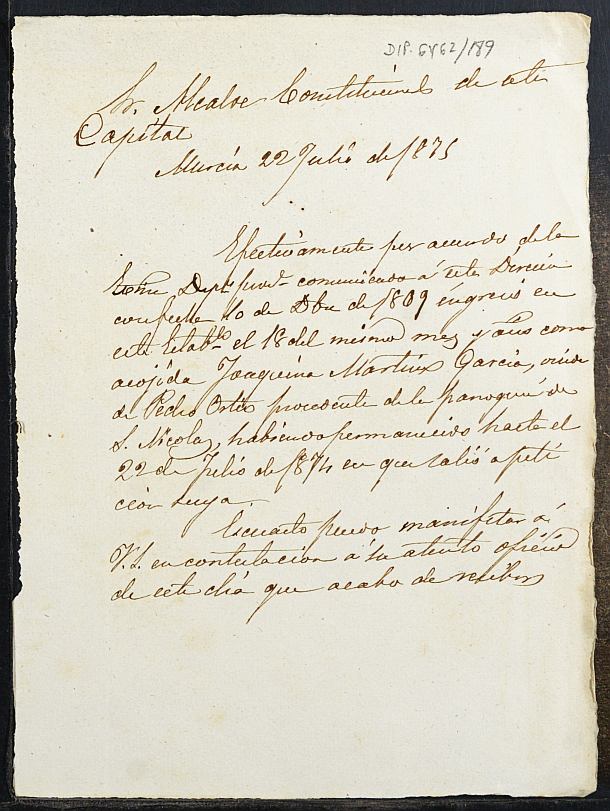 DIP. 6462/189
Sr. Alcalde Constitucional de esta
Capital
Murcia 22 Julio de 1875
Efectivamente por acuerdo de la
Exma Dipn. provl. comunicado á esta Dirección
con fecha 10 de Dbre de 1869 ingresó en
este Establto. el 18 del mismo mes y año como
acojida Joaquina Martinez Garcia, viuda
de Pedro Ortiz procedente de la parroquia de
S. Nicolas, habiendo permanecido hasta el
22 de Julio de 1874 en que salió a peti
cion suya.
Es cuanto puedo manifestar á
V.S. en contestacion á su atento oficio
de este dia que acabo de recibir